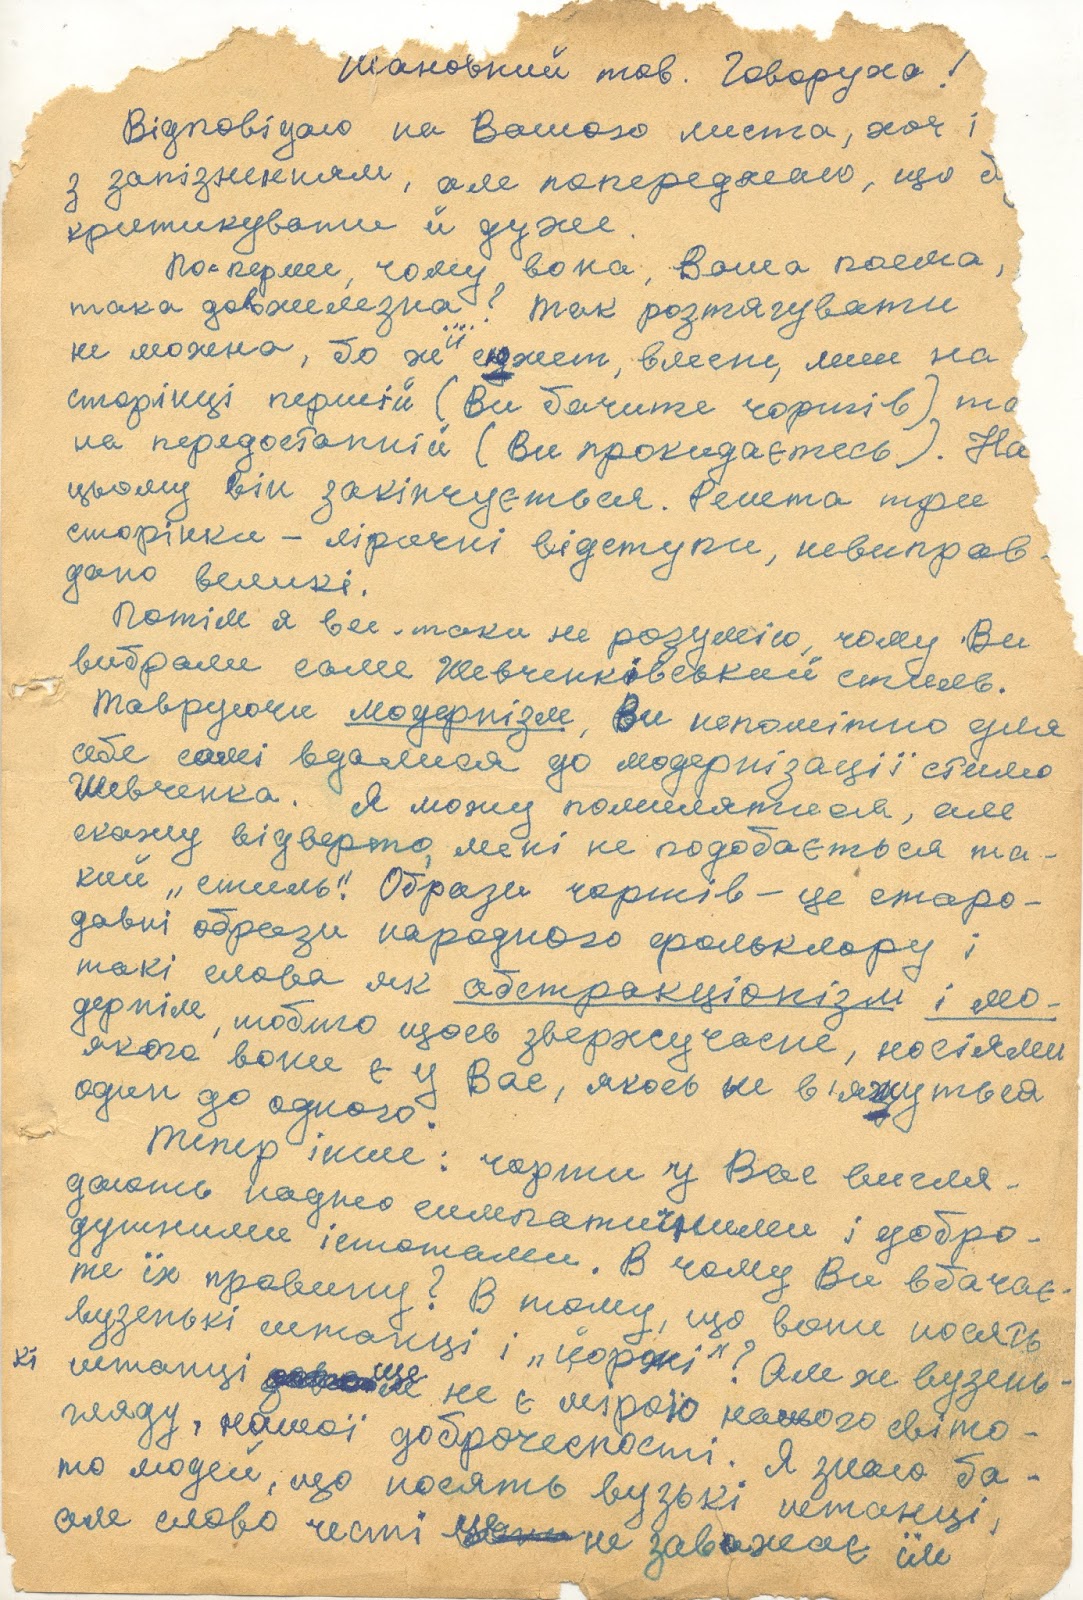 Шановний тов. Говоруха!
Відповідаю на Вашого листа, хоч і
з запізненням, але попереджаю, що бу
критикувати й дуже.
По-перше, чому вона, Ваша поема,
така довжелезна? Так розтягувати
не можна, бо ж її сюжет, власне, лише на
сторінці першій (Ви бачите чортів) та
на передостанній (Ви прокидаєтесь). На
цьому він закінчується. Решта три
сторінки – ліричні відступи, невиправ-
дано великі.
Потім я все-таки не розумію, чому Ви
вибрали саме Шевченківський стиль.
Тавруючи модернізм, Ви непомітно для
себе самі вдалися до модернізації стилю
Шевченка. Я можу помилятися, але
скажу відверто, мені не подобається та-
кий „стиль". Образи чортів – це старо-
давні образи народного фольклору і
такі слова як абстракціонізм і мо-
дернізм, тобто щось зверхсучасне, носіями
якого вони є у Вас, якось не в'яжуться
один до одного.
Тепер інше: чорти у Вас вигля-
дають надто симпатичними і добро-
душними істотами. В чому Ви вбачає-
те їх провину? В тому, що вони носять
вузенькі штанці і „йоржі"? Але ж вузень-
кі штанці ще не є мірою нашого світо-
гляду, нашої доброчесності. Я знаю ба-
то людей, що носять вузькі штанці,
але слово честі не заважає їм